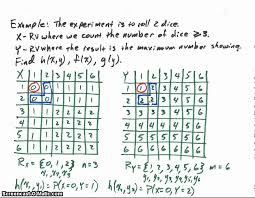 Example: The experiment is to roll 2 dice.
X - RV where we count the number of dice ≥ 3.
Y - RV where the result is the maximum number showing.
Find h(x,y), f(x), g(y).
X 1 2 3 4 5 6
1 0 0 1 1 1 1
2 0 0 1 1 1 1
3 1 1 2 2 2 2
4 1 1 2 2 2 2
5 1 1 2 2 2 2
6 1 1 2 2 2 2
Y 1 2 3 4 5 6
1 1 2 3 4 5 6
2 2 2 3 4 5 6
3 3 3 3 4 5 6
4 4 4 4 4 5 6
5 5 5 5 5 5 6
6 6 6 6 6 6 6
Rx = {0, 1, 2} n = 3
x₁ x₂ x₃
Ry = {1, 2, 3, 4, 5, 6} m = 6
y₁ y₂ y₃ y₄ y₅ y₆
h(x₁, y₁) = P(X=0, Y=1)
h(x₁, y₂) = P(X=0, Y=2)
Screencast-O-Matic.com